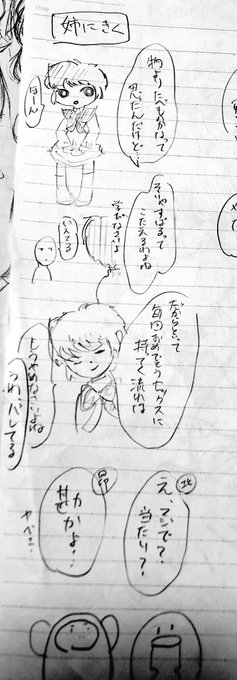 姉にきく
物よりたべものかなって
思たんだけど…
はーん
そいやすばるって
こたえるわよね
学びなさいよ
いえてる
だからといって
毎回おめでとうセックスに
持てく流れは
もうやめなさいよね
うわ、バレてる
北
え、マジで？
当たり？
昴
勘かよ！
ヤベェ…